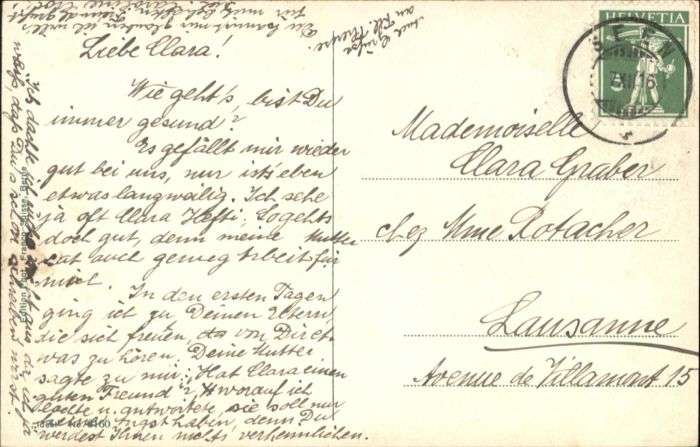 Liebe Clara!
Wie geht's, bist Du
immer gesund?
Es gefällt mir wieder
gut bei uns, nur ist's eben
etwas langwälig. Ich sehe
ja oft Clara Hefti, so gehts
doch gut, denn meine Mutter
hat auch genug Arbeit für
mich.
In den ersten Tagen
ging ich zu Deinen Eltern,
sie sich freuten, von Dir etwas
was zu hören. Deine Mutter
sagte zu mir: "Hat Clara einen
guten Freund"? worauf ich
u. antwortete, sie soll nur
keine Angst haben, denn Du
werdest Ihnen nichts verheimlichen.
Ich
weiss, dass Du schon
auch Grüsse
an Frl.
HELVETIA
5
SEEN
16
Mademoiselle
Clara Graber
chez Mme Rotacher
Lausanne
Avenue de Villamont 15